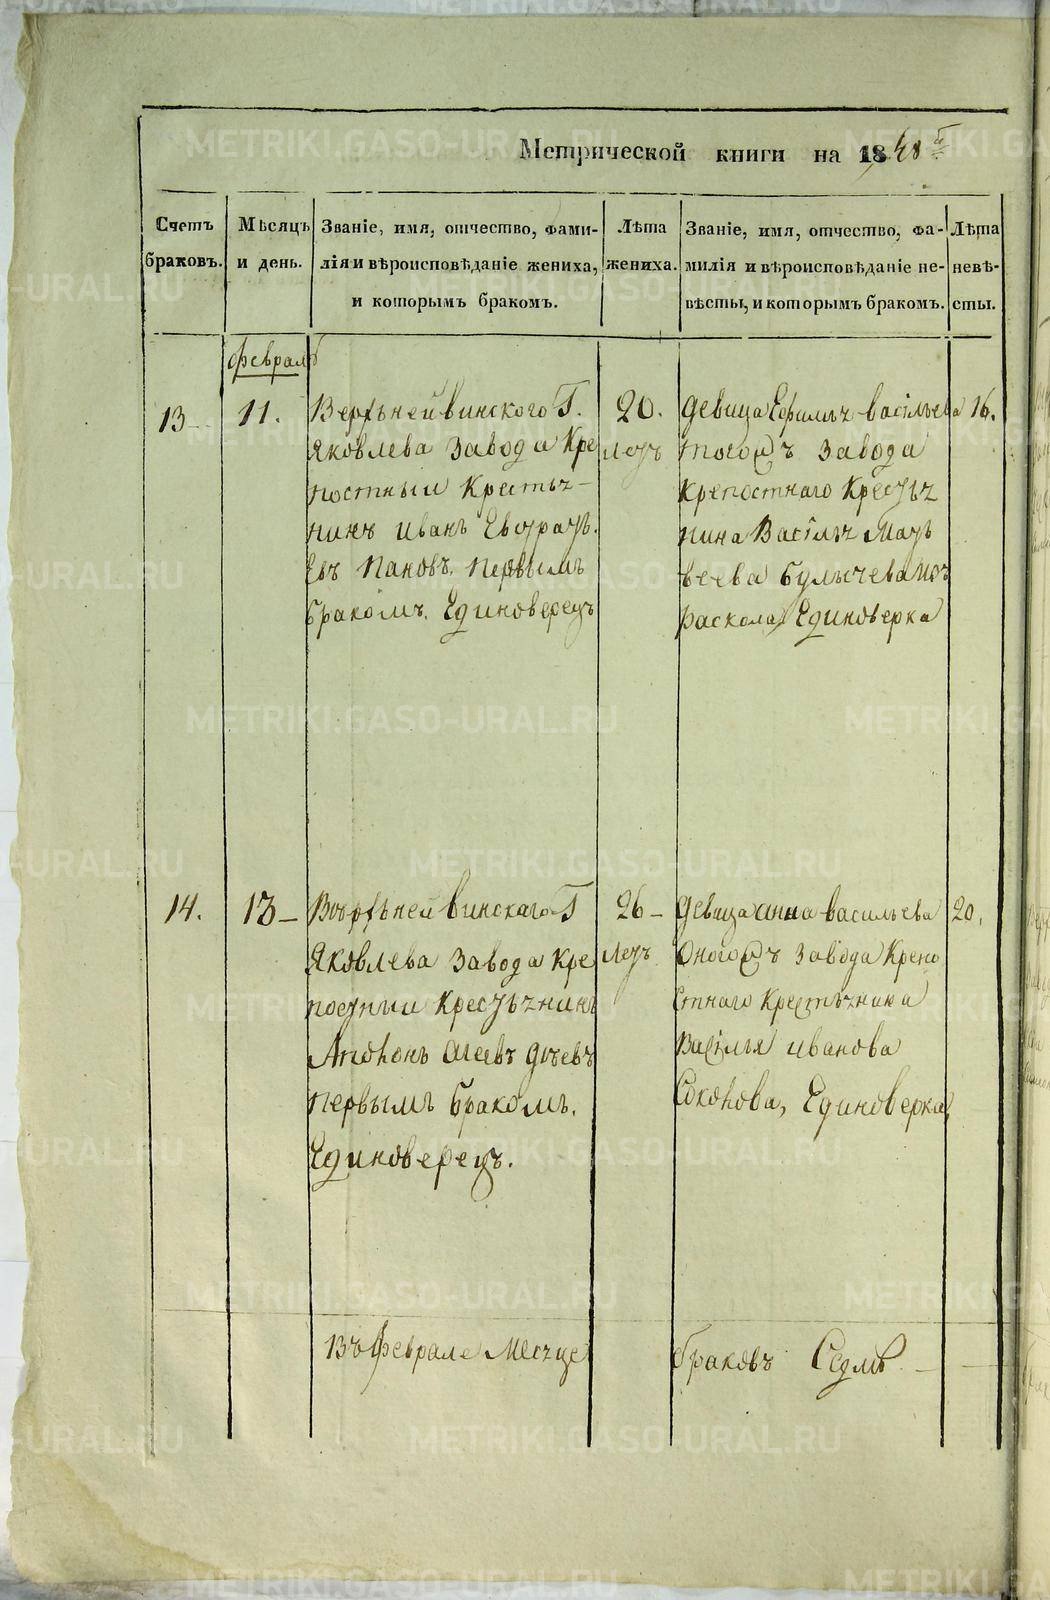 Метрической книги на 1848 г.
Счетъ браковъ.
Мѣсяцъ и день.
Званіе, имя, отчество, фами-
лія и вѣроисповѣданіе жениха,
и которымъ бракомъ.
Лѣта жениха.
Званіе, имя, отчество, фа-
милія и вѣроисповѣданіе не-
вѣсты, и которымъ бракомъ.
Лѣта невѣ-
сты.
февраль
13
11.
Верхънейвинского Г.
Яковлева Завода Кре
постныи Крестья-
нинъ Иванъ Евстратъ.
Евъ Пановъ. Первымъ
бракомъ. Единоверецъ
20.
летъ
девица Ефимья васильева
того Завода
Крепостнаго Крестья
нина Василья Мат
веева Булычева изъ
раскола Единоверка
16.
14.
13-
Верхъней винскаго Г
Яковлева Завода Кре
постныи Крестьянинъ
первымъ бракомъ.
Единоверецъ.
26-
летъ
девица анна васильева
Оного Завода Крепо
стнаго Крестьянина
Василья иванова
Единоверка,
20.
Въ феврале Месяце
браковъ Седмь.
METRIKI.GASO-URAL.RU